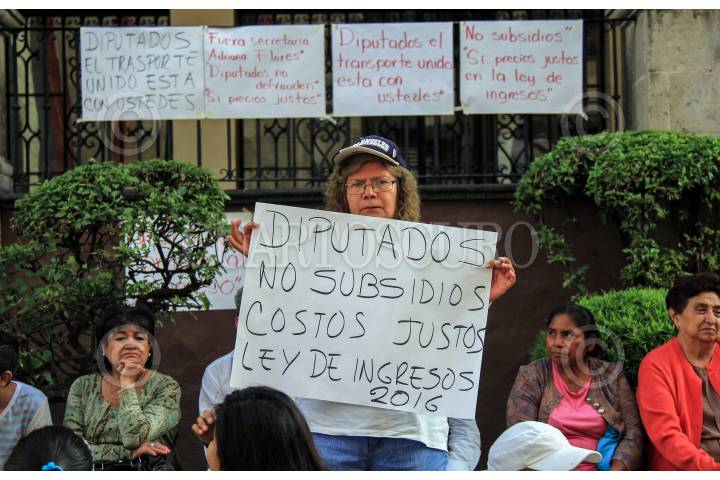 DIPUTADOS
EL TRASPORTE
UNIDO ESTA
CON USTEDES
Fuera secretaria
Adriana Flores"
Diputados no
defrauden"
"Si precios justos"
Diputados el
transporte unido
esta con
ustedes"
No subsidios"
"Si precios justos
en la ley de
ingresos"
ANGELES
DIPUTADOS
NO SUBSIDIOS
COSTOS JUSTOS
LEY DE INGRESOS
2016